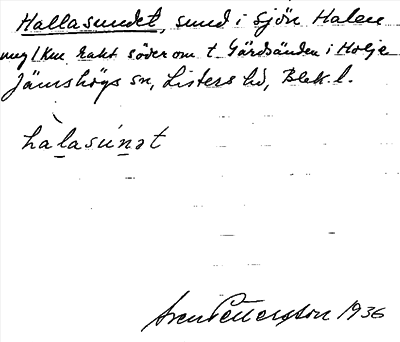 Hallasundet, sund i sjön Halen
ung 1 km rakt söder om t Gärdsänden i Holje
Jämshögs sn, Listers hd, Blek. l.
hàlasúnət
Sven Pettersson 1936